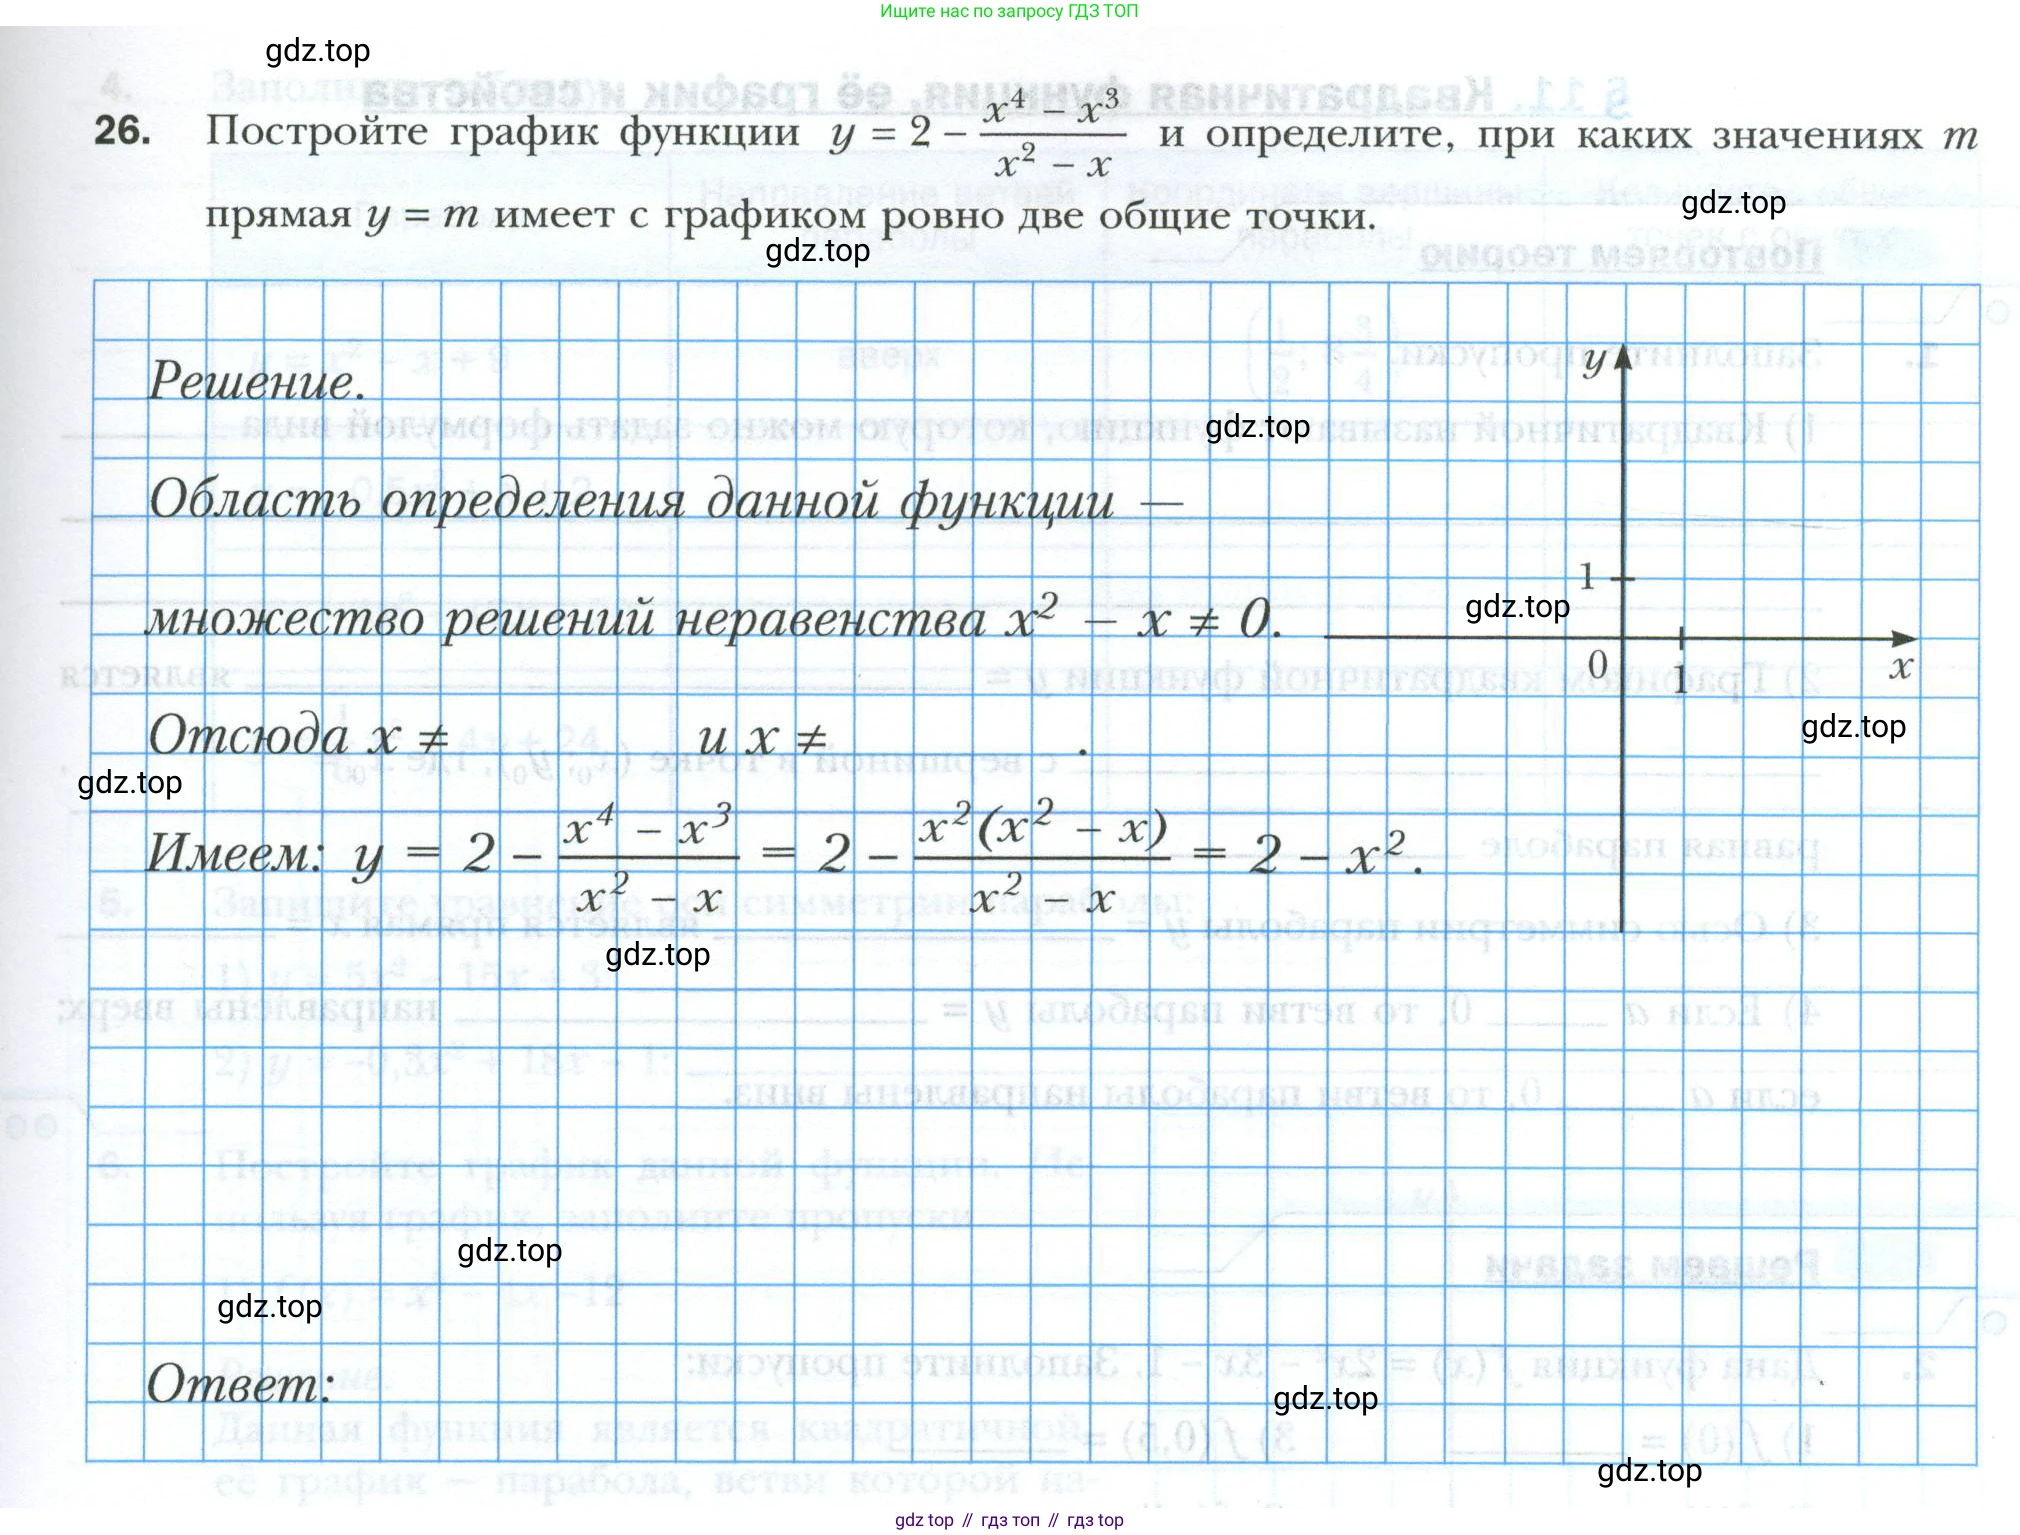 Ищите нас по запросу ГДЗ ТОП
gdz.top
26. Постройте график функции y = 2 − (x⁴ − x³)/(x² − x) и определите, при каких значениях m
прямая y = m имеет с графиком ровно две общие точки.
gdz.top
gdz.top
Решение.
y
gdz.top
Область определения данной функции —
1
gdz.top
множество решений неравенства x² − x ≠ 0.
0 1 x
Отсюда x ≠ и x ≠ .
gdz.top
gdz.top
Имеем: y = 2 − (x⁴ − x³)/(x² − x) = 2 − (x²(x² − x))/(x² − x) = 2 − x².
gdz.top
gdz.top
gdz.top
Ответ:
gdz.top
gdz.top
gdz top // гдз топ // гдз top